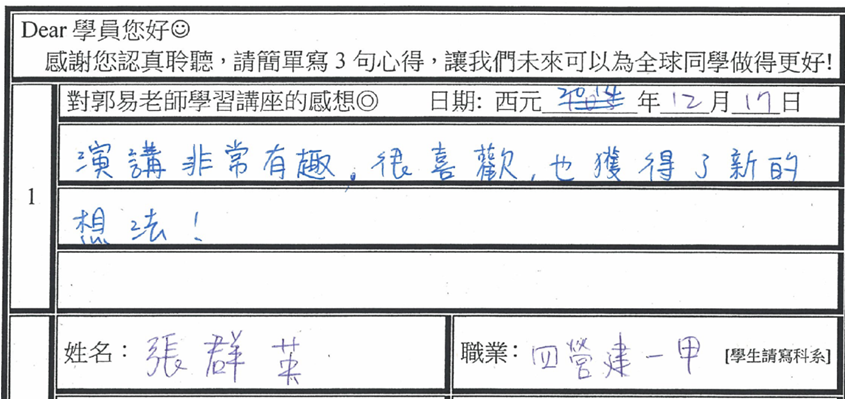 Dear 學員您好☺
感謝您認真聆聽，請簡單寫 3 句心得，讓我們未來可以為全球同學做得更好!
1
對郭易老師學習講座的感想◎ 日期: 西元 2014 年 12 月 17 日
演講非常有趣，很喜歡，也獲得了新的
想法！
姓名：張群英 職業：四營建一甲 [學生請寫科系]